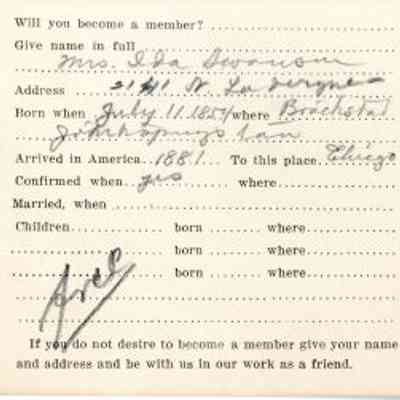 Will you become a member?
Give name in full
Mrs. Ida Swanson
Address 2141 N Lavergne
Born when July 11 1854 where
Arrived in America 1881. To this place Chicago
Confirmed when yes where
Married, when
Children born where
born where
born where
If you do not desire to become a member give your name
and address and be with us in our work as a friend.